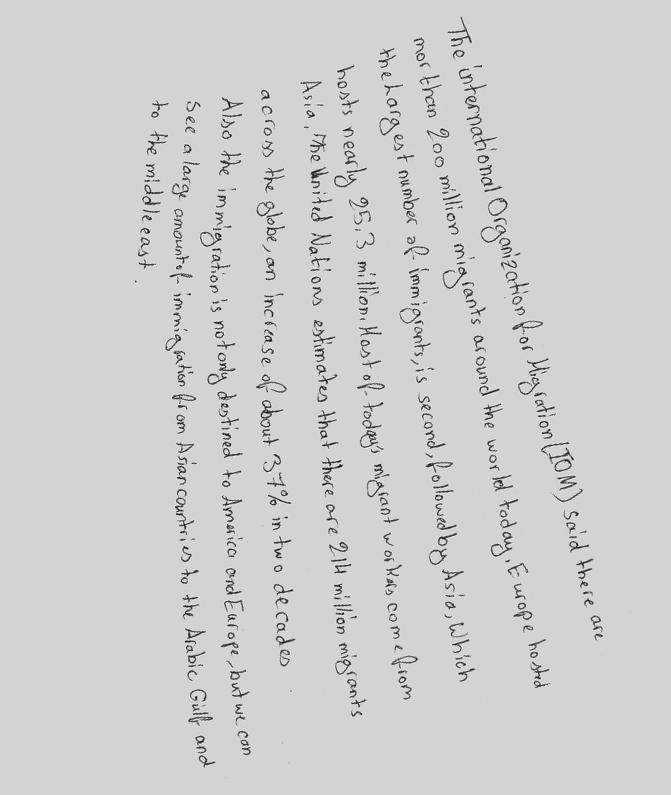 The international Organization for Migration (IOM) said there are
mor than 200 million migrants around the world today, Europe hosted
the Largest number of immigrants, is second, followed by Asia, Which
hosts nearly 25,3 million. Most of today's migrant workers come from
Asia, The United Nations estimates that there are 214 million migrants
across the globe, an increase of about 37% in two decades.
Also the immigration is not only destined to America and Europe, but we can
See a large amount of immigration from Asian countries to the Arabic Gulf and
to the middle east.